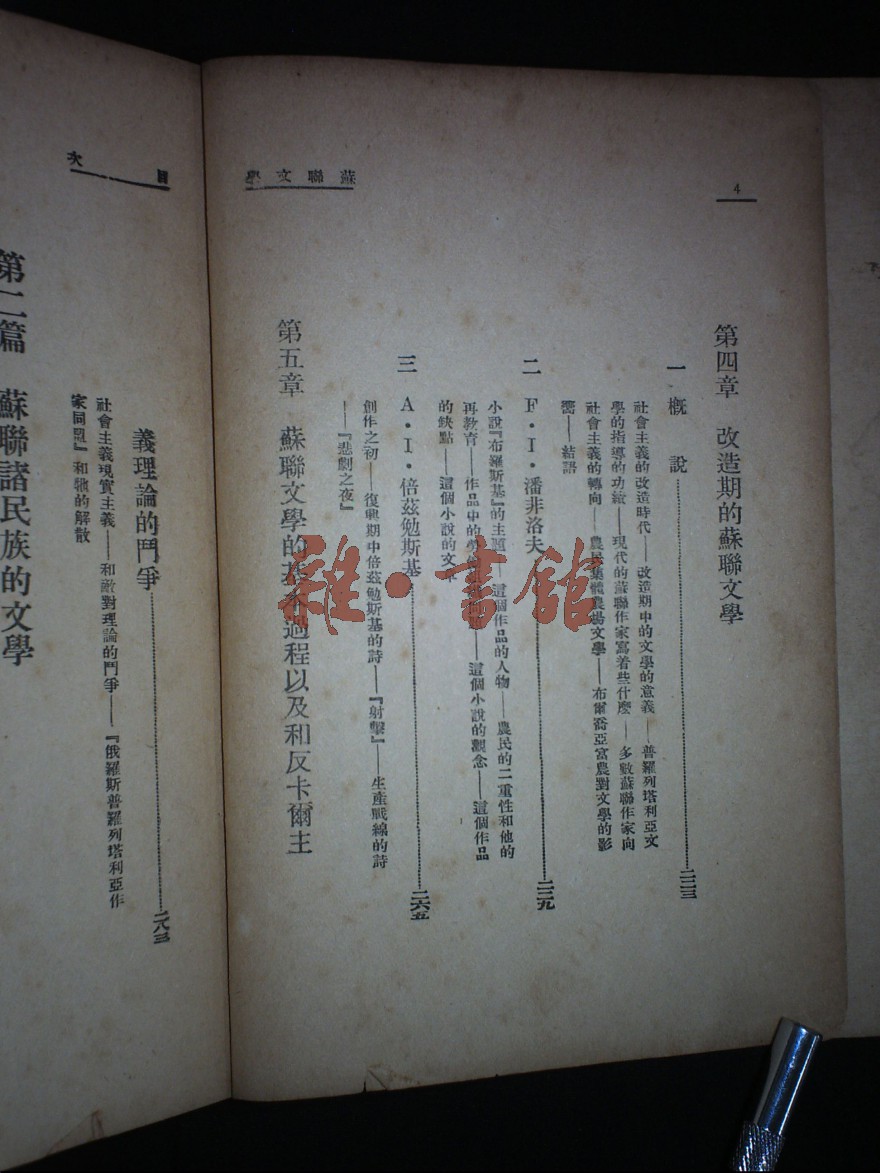 4
蘇聯文學
第四章 改造期的蘇聯文學
一 概 說……二二三
社會主義的改造時代——改造期中的文學的意義——普羅列塔利亞文
學的指導的功績——現代的蘇聯作家寫着些什麼——多數蘇聯作家向
社會主義的轉向——農民集體農場文學——布爾喬亞富農對文學的影
響——結語
二 F·I·潘菲洛夫……二三九
小說『布羅斯基』的主題——這個作品的人物——農民的二重性和他的
再教育——作品中的勞——這個小說的觀念——這個作品
的缺點——這個小說的文章
三 A·I·倍兹勉斯基……二六五
創作之初——復興期中倍兹勉斯基的詩——『射擊』——生產戰線的詩
——『悲劇之夜』
第五章 蘇聯文學的基本過程以及和反卡爾主
目次
義理論的鬥爭……二八三
社會主義現實主義——和敵對理論的鬥爭——『俄羅斯普羅列塔利亞作
家同盟』和牠的解散
第二篇 蘇聯諸民族的文學
雜·書館